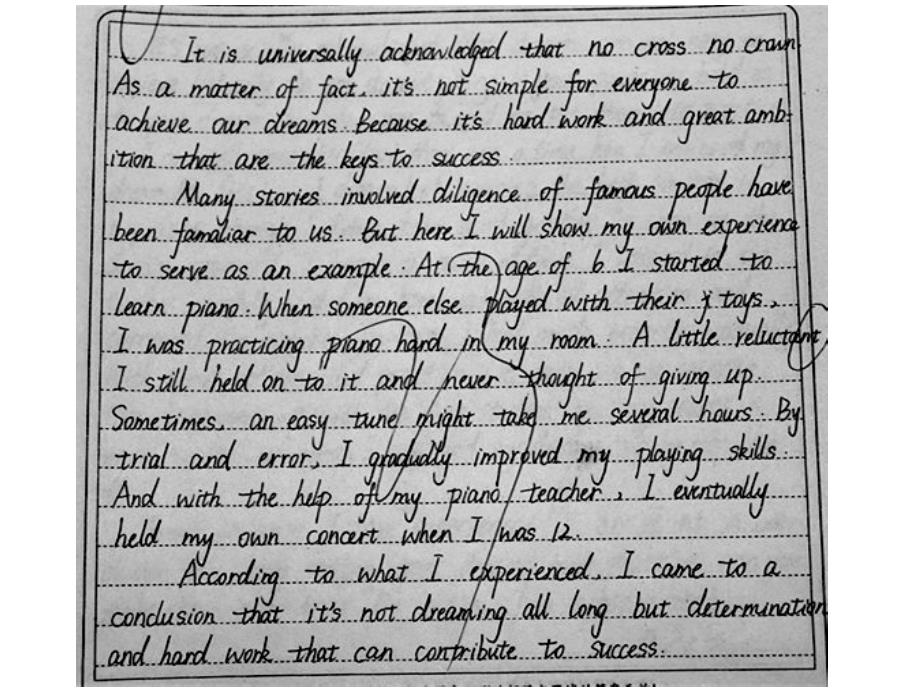 It is universally acknowledged that no cross no crown
As a matter of fact, it's not simple for everyone to
achieve our dreams. Because it's hard work and great amb-
ition that are the keys to success.
Many stories involved diligence of famous people have
been familiar to us. But here I will show my own experience
to serve as an example. At the age of 6 I started to
learn piano. When someone else played with their toys,
I was practicing piano hard in my room. A little reluctant
I still held on to it and never thought of giving up.
Sometimes, an easy tune might take me several hours. By
trial and error, I gradually improved my playing skills.
And with the help of my piano teacher, I eventually
held my own concert when I was 12.
According to what I experienced, I came to a
conclusion that it's not dreaming all long but determination
and hard work that can contribute to success.